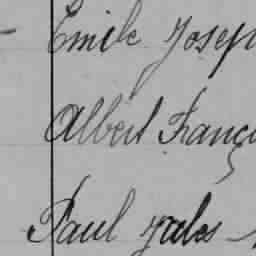 Emile Josep
Albert Franç
Paul Jules